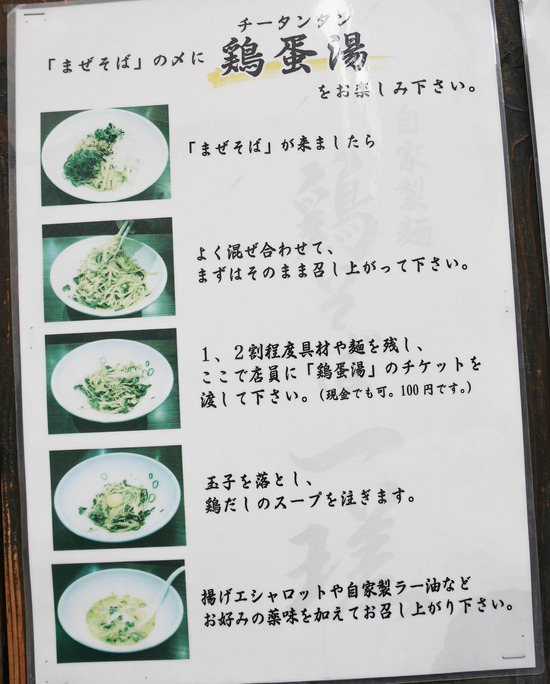 チータンタン
「まぜそば」の〆に 鶏蛋湯
をお楽しみ下さい。
「まぜそば」が来ましたら
よく混ぜ合わせて、
まずはそのまま召し上がって下さい。
1、2割程度具材や麺を残し、
ここで店員に「鶏蛋湯」のチケットを
渡して下さい。(現金でも可。100円です。)
玉子を落とし、
鶏だしのスープを注ぎます。
揚げエシャロットや自家製ラー油など
お好みの薬味を加えてお召し上がり下さい。
自家製麺
鶏そば
一瑳